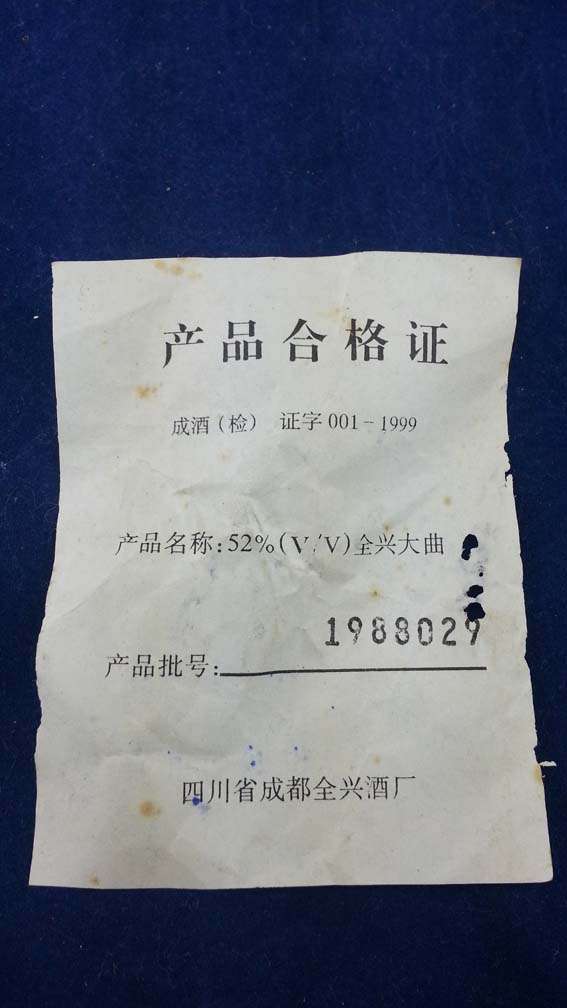 产品合格证
成酒（检） 证字 001－1999
产品名称：52%（V/V）全兴大曲
1988029
产品批号：
四川省成都全兴酒厂